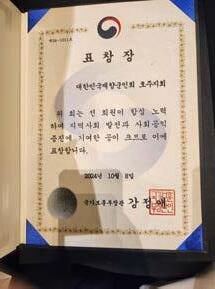 표 창 장
대한민국재향군인회 호주지회
위 회는 전 회원이 합심 노력
하여 지역사회 발전과 사회공익
증진에 기여한 공이 크므로 이에
표창합니다.
2024년 10월 8일
국가보훈부장관 강정애